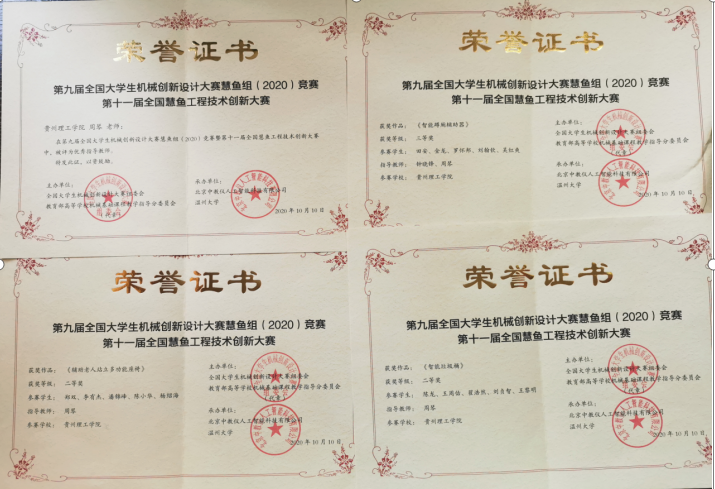 荣誉证书
第九届全国大学生机械创新设计大赛慧鱼组(2020)竞赛
第十一届全国慧鱼工程技术创新大赛
贵州理工学院 周 老师:
在第九届全国大学生机械创新设计大赛慧鱼组(2020)竞赛暨第十一届全国慧鱼工程技术创新大赛
中,被评为优秀指导教师。
特发此证,以资鼓励。
主办单位:
全国大学生机械创新设计大赛组委会
教育部高等学校机械基础课程教学指导分委员会
(代章)
承办单位:
北京中教仪人工智能科技有限公司
温州大学
2020年10月10日
荣誉证书
第九届全国大学生机械创新设计大赛慧鱼组(2020)竞赛
第十一届全国慧鱼工程技术创新大赛
获奖作品:
获奖等级:二等奖
参赛学生:田安、金龙、罗怀邦、刘翰钦、吴红爽
指导教师:钟晓锋、周
参赛学校:贵州理工学院
主办单位:
全国大学生机械创新设计大赛组委会
教育部高等学校机械基础课程教学指导分委员会
(代章)
承办单位:
北京中教仪人工智能科技有限公司
温州大学
2020年10月10日
荣誉证书
第九届全国大学生机械创新设计大赛慧鱼组(2020)竞赛
第十一届全国慧鱼工程技术创新大赛
获奖作品:《辅助老人站立多功能座椅》
获奖等级:二等奖
参赛学生:郑双、李有杰、潘锦峰、陈小华、杨绍海
指导教师:周
参赛学校:贵州理工学院
主办单位:
全国大学生机械创新设计大赛组委会
教育部高等学校机械基础课程教学指导分委员会
(代章)
承办单位:
北京中教仪人工智能科技有限公司
温州大学
2020年10月10日
荣誉证书
第九届全国大学生机械创新设计大赛慧鱼组(2020)竞赛
第十一届全国慧鱼工程技术创新大赛
获奖作品:《智能垃圾桶》
获奖等级:二等奖
参赛学生:陈龙、王周估、崔浩然、刘自智、王黎明
指导教师:周
参赛学校:贵州理工学院
主办单位:
全国大学生机械创新设计大赛组委会
教育部高等学校机械基础课程教学指导分委员会
(代章)
承办单位:
北京中教仪人工智能科技有限公司
温州大学
2020年10月10日